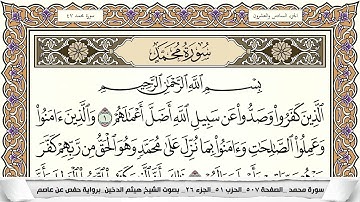 الجزء السادس والعشرون
سورة محمد ٤٧
سُورَةُ مُحَمَّدٍ
بِسْمِ اللَّهِ الرَّحْمَٰنِ الرَّحِيمِ
الَّذِينَ كَفَرُوا وَصَدُّوا عَن سَبِيلِ اللَّهِ أَضَلَّ أَعْمَٰلَهُمْ ١ وَالَّذِينَ ءَامَنُوا
وَعَمِلُوا الصَّٰلِحَٰتِ وَءَامَنُوا بِمَا نُزِّلَ عَلَىٰ مُحَمَّدٍ وَهُوَ الْحَقُّ مِن رَّبِّهِمْ كَفَّرَ
سورة محمد _الصفحة ٥٠٧_ الحزب ٥١_ الجزء ٢٦_ بصوت الشيخ هيثم الدخين_برواية حفص عن عاصم